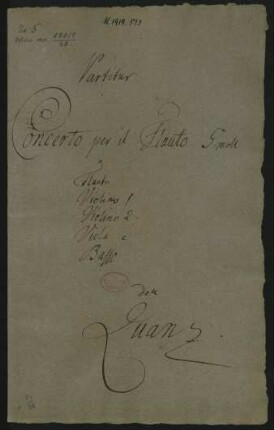 M. 1919. 513
No 5
Partitur
Concerto per il Flauto G moll
Flauto
Violino 1
Violino 2
Viola e
Basso
del
Quanz